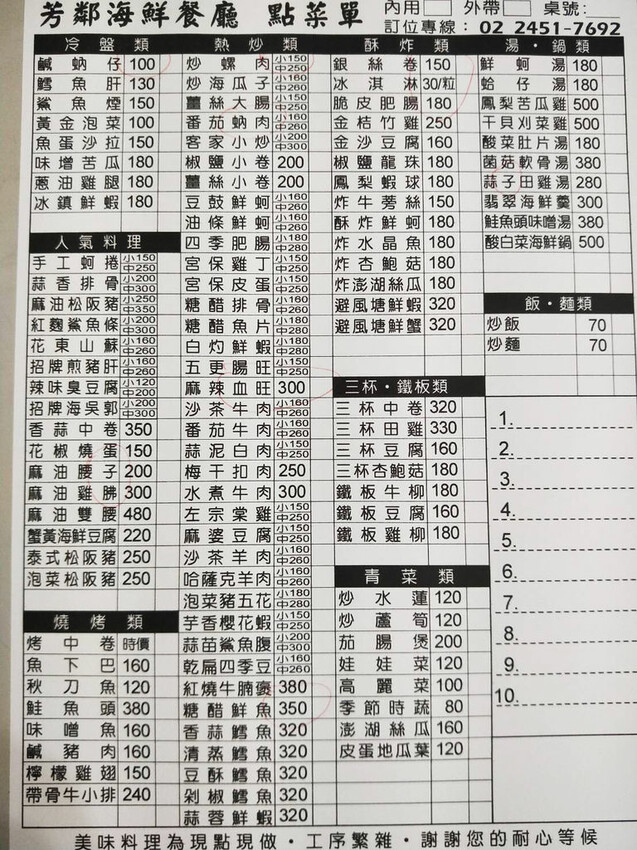 芳鄰海鮮餐廳 點菜單
內用 外帶 桌號:
訂位專線: 02 2451-7692
冷盤類
鹹蚋仔 100
鱈魚肝 130
鯊魚煙 150
黃金泡菜 100
魚蛋沙拉 150
味增苦瓜 180
蔥油雞腿 180
冰鎮鮮蝦 180
人氣料理
手工蚵捲 小150 中250
蒜香排骨 小200 中300
麻油松阪豬 小250 中350
紅麴鯊魚條 小200 中300
花東山蘇 小160 中260
招牌煎豬肝 小160 中250
辣味臭豆腐 小120 中200
招牌海吳郭 小200 中300
香蒜中卷 350
花椒燒蛋 150
麻油腰子 200
麻油雞胇 300
麻油雙腰 480
蟹黃海鮮豆腐 220
泰式松阪豬 250
泡菜松阪豬 250
燒烤類
烤中卷 時價
魚下巴 160
秋刀魚 120
鮭魚頭 380
味噌魚 160
鹹豬肉 160
檸檬雞翅 150
帶骨牛小排 240
熱炒類
炒螺肉 小150 中250
炒海瓜子 小160 中260
薑絲大腸 小150 中250
番茄蚋肉 小160 中260
客家小炒 小200 中300
椒鹽小卷 200
薑絲小卷 200
豆鼓鮮蚵 小160 中260
油條鮮蚵 小160 中260
四季肥腸 小180 中280
宮保雞丁 小150 中250
宮保皮蛋 小150 中250
糖醋排骨 小160 中260
糖醋魚片 小180 中280
白灼鮮蝦 小180 中280
五更腸旺 小150 中250
麻辣血旺 300
沙茶牛肉 小160 中260
番茄牛肉 小160 中260
蒜泥白肉 小150 中250
梅干扣肉 250
水煮牛肉 300
左宗棠雞 小150 中250
麻婆豆腐 小150 中250
沙茶羊肉 小160 中260
哈薩克羊肉 小160 中260
泡菜豬五花 小180 中280
芋香櫻花蝦 小150 中250
蒜苗鯊魚腹 小200 中300
乾扁四季豆 小160 中260
紅燒牛腩褒 380
糖醋鮮魚 350
香蒜鱈魚 320
清蒸鱈魚 320
豆酥鱈魚 320
剁椒鱈魚 320
蒜蓉鮮蝦 320
酥炸類
銀絲卷 150
冰淇淋 30/粒
脆皮肥腸 180
金桔竹雞 250
金沙豆腐 160
椒鹽龍珠 180
鳳梨蝦球 180
炸牛蒡絲 150
酥炸鮮蚵 180
炸水晶魚 180
炸杏鮑菇 180
炸澎湖絲瓜 180
避風塘鮮蟹 320
避風塘鮮蝦 320
三杯・鐵板類
三杯中卷 320
三杯田雞 330
三杯豆腐 160
三杯杏鮑菇 180
鐵板牛柳 180
鐵板豆腐 160
鐵板雞柳 180
青菜類
炒水蓮 120
炒蘆筍 120
茄腸煲 200
娃娃菜 120
高麗菜 100
季節時蔬 80
澎湖絲瓜 160
皮蛋地瓜葉 120
湯・鍋類
鮮蚵湯 180
蛤仔湯 180
鳳梨苦瓜雞 500
干貝刈菜雞 500
酸菜肚片湯 180
菌菇軟骨湯 380
蒜子田雞湯 280
翡翠海鮮羹 300
鮭魚頭味噌湯 380
酸白菜海鮮鍋 500
飯・麵類
炒飯 70
炒麵 70
1.
2.
3.
4.
5.
6.
7.
8.
9.
10.
美味料理為現點現做・工序繁雜・謝謝您的耐心等候